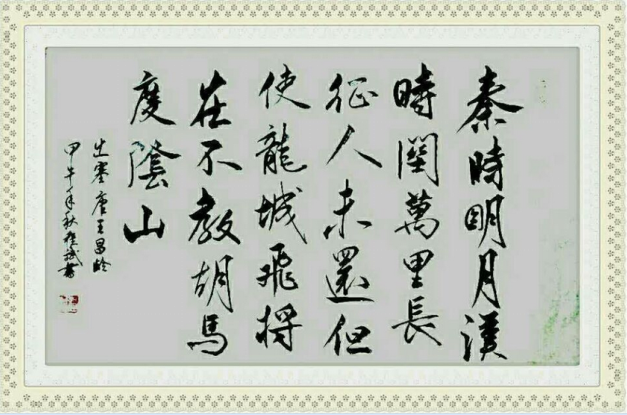 秦時明月漢
時關萬里長
征人未還但
使龍城飛將
在不教胡馬
度陰山
出塞唐王昌齡
甲午年秋程斌書